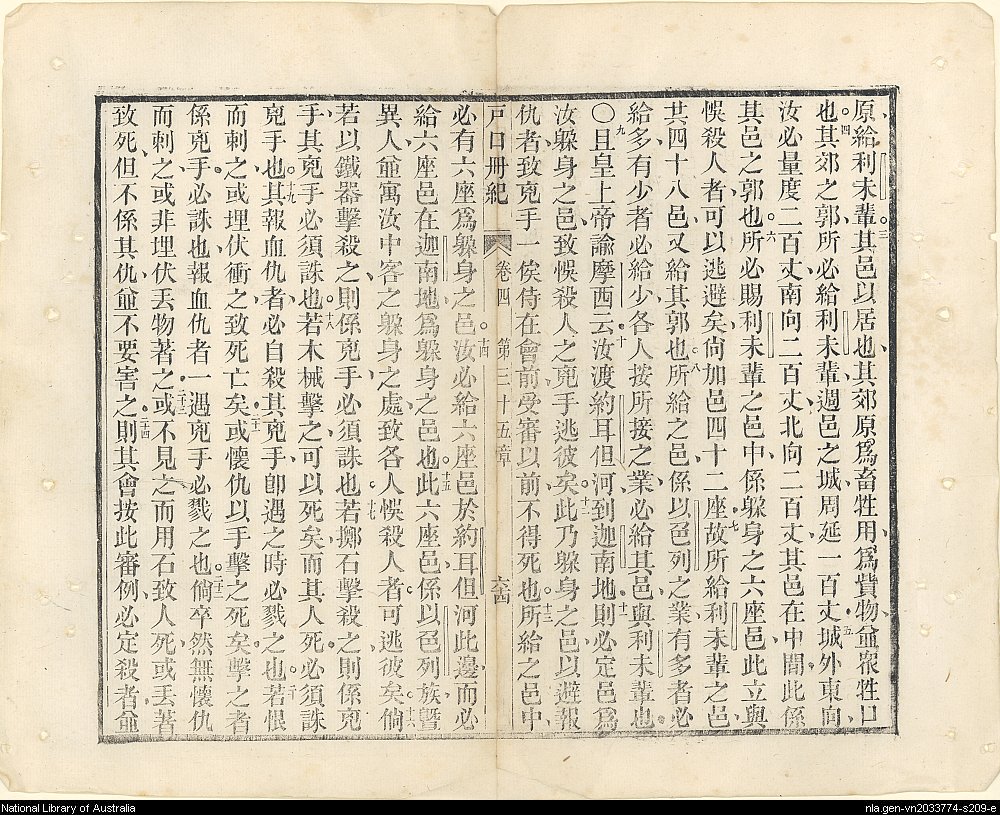 原給利未輩其邑以居也其郊原爲畜牲用爲貲物並眾牲口
也四其郊之郭所必給利未輩週邑之城周延一百丈五城外東向
汝必量度二百丈南向二百丈北向二百丈其邑在中間此係
其邑之郭也六所必賜利未輩之邑中係躲身之六座邑此立與
悞殺人者可以逃避矣尙加邑四十二座七故所給利未輩之邑
共四十八邑又給其郭也八所給之邑係以色列之業有多者必
給多有少者必給少各人按所接之業必給其邑與利未輩也
○九且皇上帝諭摩西云十汝渡約耳但河到迦南地十一則必定邑爲
汝躲身之邑致悞殺人之兇手逃彼矣十二此乃躲身之邑以避報
仇者致兇手一俟侍在會前受審以前不得死也十三所給之邑中
戸口冊紀 卷四 第三十五章 六十四
必有六座爲躲身之邑十四汝必給六座邑於約耳但河此邊而必
給六座邑在迦南地爲躲身之邑也十五此六座邑係以色列族曁
異人並寓汝中客之躲身之處致各人悞殺人者可逃彼矣十六倘
若以鐵器擊殺之則係兇手必須誅也十七若擲石擊殺之則係兇
手其兇手必須誅也十八若木械擊之可以死矣而其人死必須誅
兇手也十九其報血仇者必自殺其兇手卽遇之時必戮之也二十若恨
而刺之或埋伏衝之致死亡矣二十一或懷仇以手擊之死矣擊之者
係兇手必誅也報血仇者一遇兇手必戮之也二十二倘卒然無懷仇
而刺之或非埋伏丟物著之二十三或不見之而用石致人死或丟著
致死但不係其仇並不要害之二十四則其會按此審例必定殺者並
National Library of Australia
nla.gen-vn2033774-s209-e